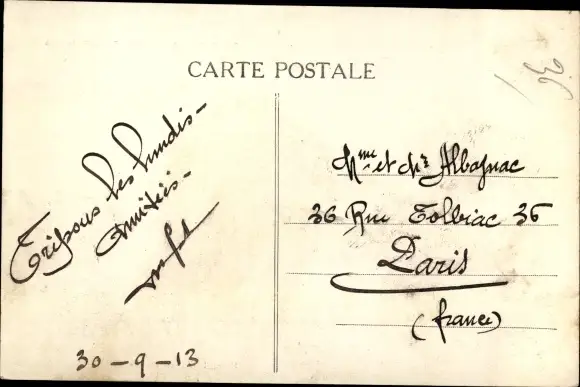 CARTE POSTALE
Tripous les lundis -
amitiés -
30 - 9 - 13
Mme et Mr Albagnac
36 Rue Tolbiac 36
Paris
(france)
36